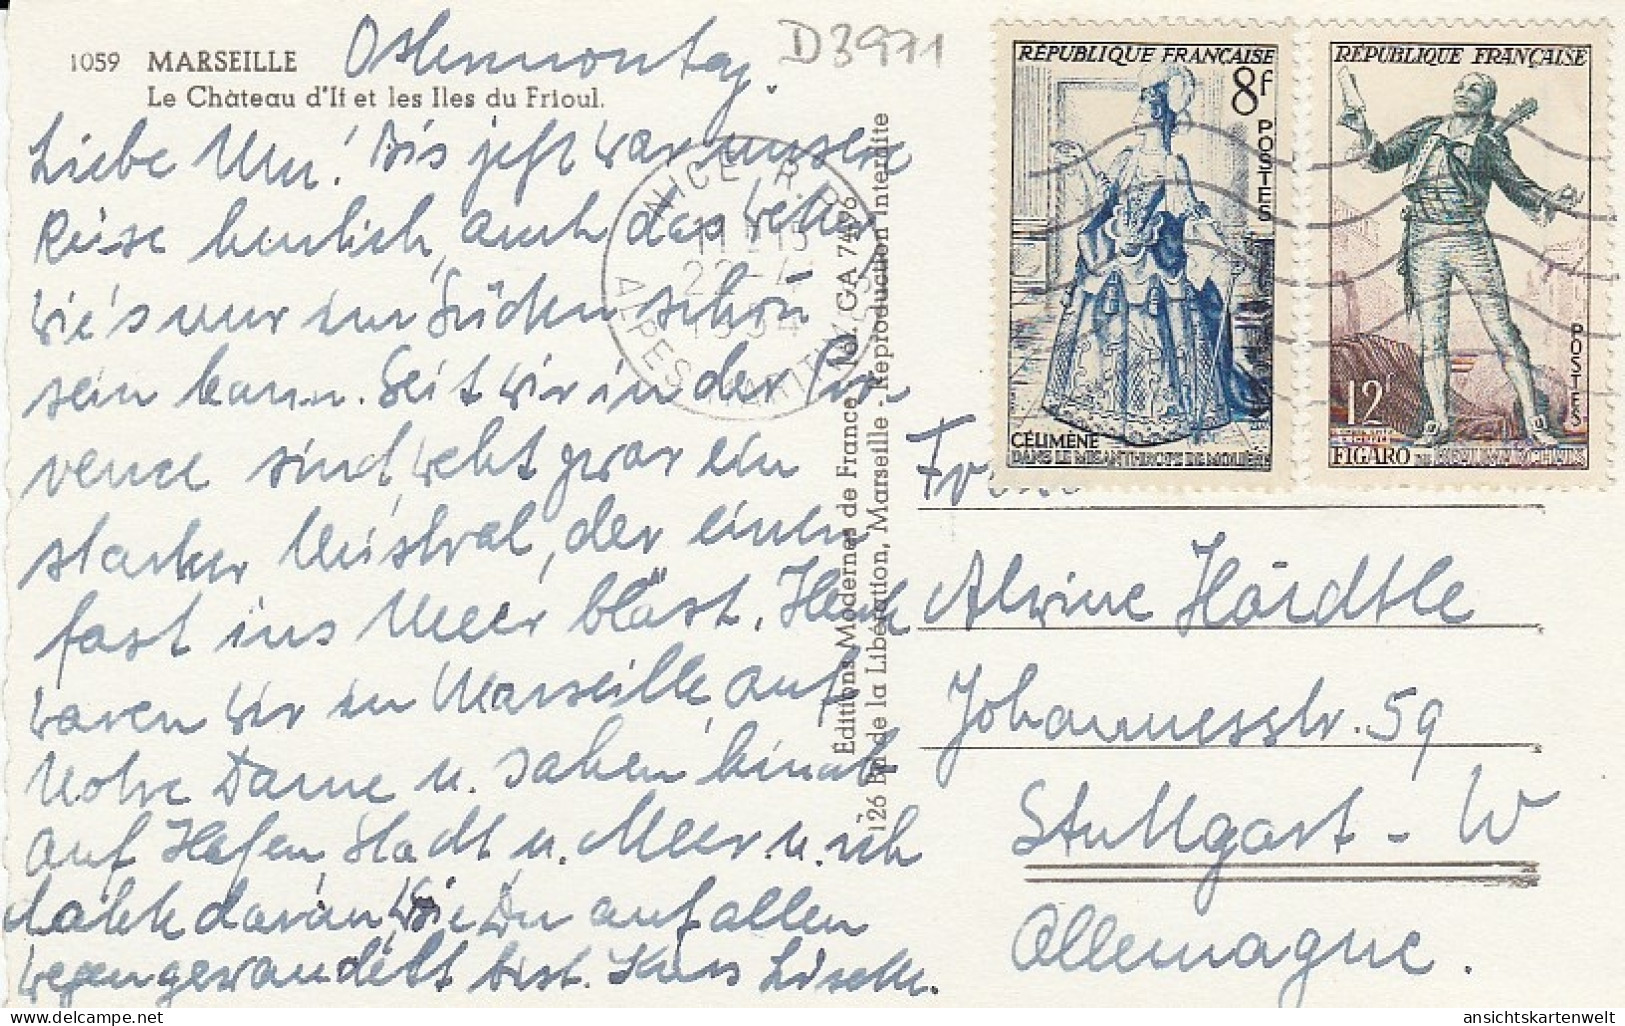 1059 MARSEILLE
Le Château d'If et les Iles du Frioul.
Ostermontag.
D3971
Liebe Um! Bis jetzt war unsere
Reise herrlich, auch das Wetter
wie's nur im Süden schön
sein kann. Seit wir in der Pro-
vence sind, weht zwar ein
starker Mistral, der einen
fast ins Meer bläst. Heute
waren wir in Marseille, auf
Notre Dame u. sahen hinab
auf Hafen Stadt u. Meer. u. ich
dachte daran, wie Du auf allen
Wegen gewandelt bist. Kuss Liselte.
Editions Modernes de France
126 Rue de la Libération, Marseille - Reproduction interdite
NICE R.P.
ALPES MARITIMES
1954
RÉPUBLIQUE FRANÇAISE
8f
POSTES
CÉLIMÈNE
DANS LE MISANTHROPE DE MOLIÈRE
RÉPUBLIQUE FRANÇAISE
12f
POSTES
FIGARO DE BEAUMARCHAIS
Alwine Härdtle
Johannesstr. 59
Stuttgart - W
Allemagne.
ansichtskartenwelt